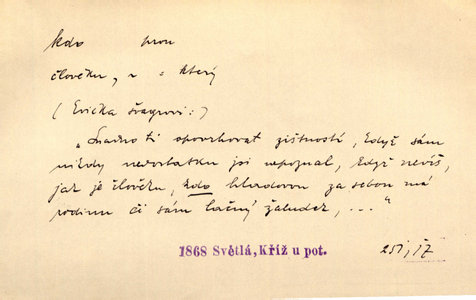 kdo pron
člověku, n = který
(Evička švagrovi:)
„Snadno ti opovrhovat zištností, když sám
nikdy nedostatku jsi nepoznal, když nevíš,
jak je člověku, kdo hladovou za sebou má
rodinu či sám lačný žaludek, ..."
1868 Světlá, Kříž u pot.
251, 17